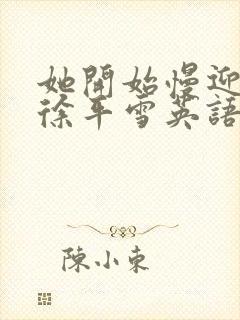 她開始慢迎
徐平雪英語
陳小東